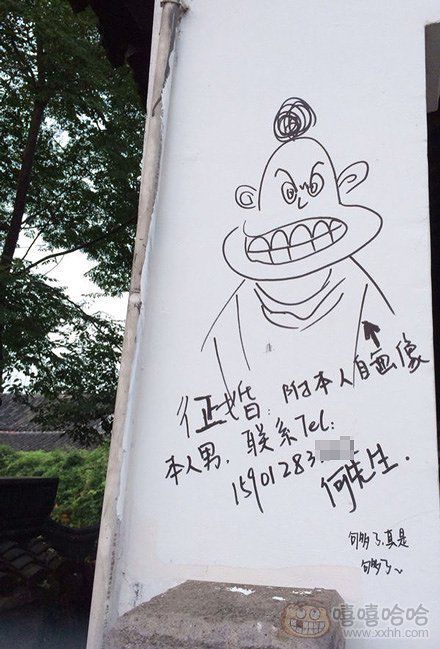 征婚：附本人自画像
本人男，联系Tel：
15901283
何先生.
够了，真是
够了~
嘻嘻哈哈
www.xxhh.com